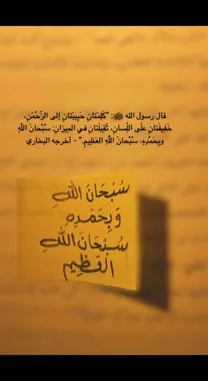 قال رسول الله ﷺ: "كَلِمَتَانِ حَبِيبَتَانِ إلى الرَّحْمَنِ،
خَفِيفَتَانِ علَى اللِّسَانِ، ثَقِيلَتَانِ في المِيزَانِ: سُبْحَانَ اللَّهِ
وبِحَمْدِهِ، سُبْحَانَ اللَّهِ العَظِيمِ." - أخرجه البخاري
سُبْحَانَ اللهِ
وَبِحَمْدِهِ
سُبْحَانَ اللهِ
العَظِيم